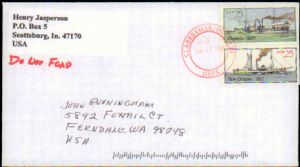 Henry Jasperson
P.O. Box 5
Scottsburg, In. 47170
USA
Do Not Fold
CLARKSVILLE
USPS
USA 25
Phoenix 1809
USA 25
New Orleans 1812
JOHN CUNNINGHAM
5892 FOXTAIL CT
FERNDALE, WA 98248
USA